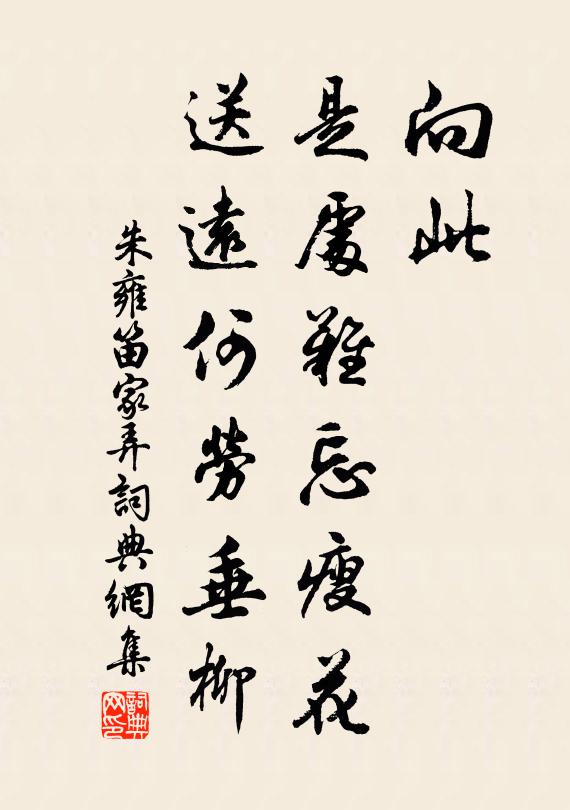 向此
是處難忘瘦花
送遠何勞垂柳
朱雍笛家弄詞典網集
詞典網印